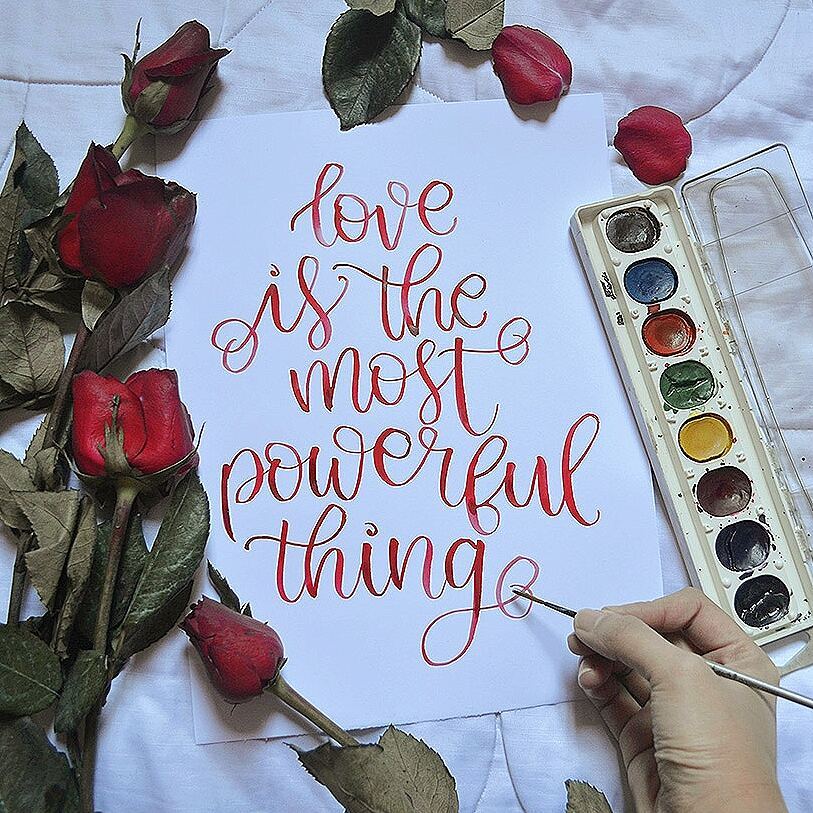 love
is the
most
powerful
thing